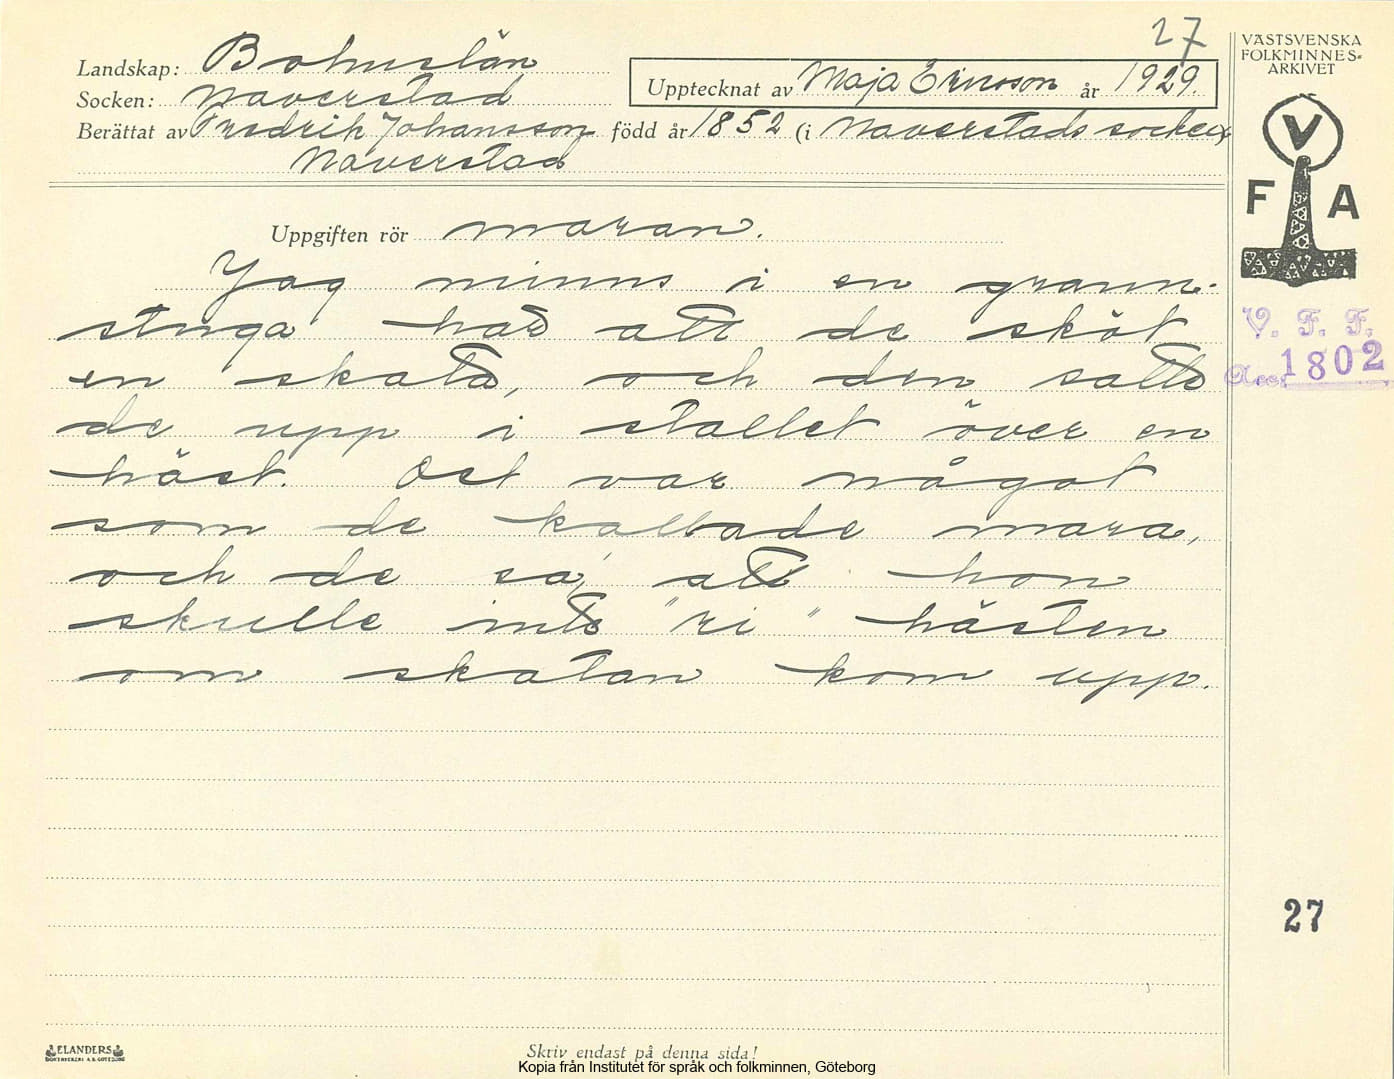 27
VÄSTSVENSKA
FOLKMINNES-
ARKIVET
Landskap: Bohuslän
Socken: Naverstad
Upptecknat av Maja Ericsson år 1929.
Berättat av Fredrik Johansson född år 1852 (i Naverstads socken)
Naverstad
V
F A
Uppgiften rör maran.
Jag minns i en grann-
stuga här att de sköt
en skata, och den satte
de upp i stallet över en
häst. Det var något
som de kallade mara,
och de sa, att hon
skulle inte "ri" hästen
om skatan kom upp.
V. F. F.
Acc: 1802
27
ELANDERS
BOKTRYCKERI A.B. GÖTEBORG
Skriv endast på denna sida!
Kopia från Institutet för språk och folkminnen, Göteborg